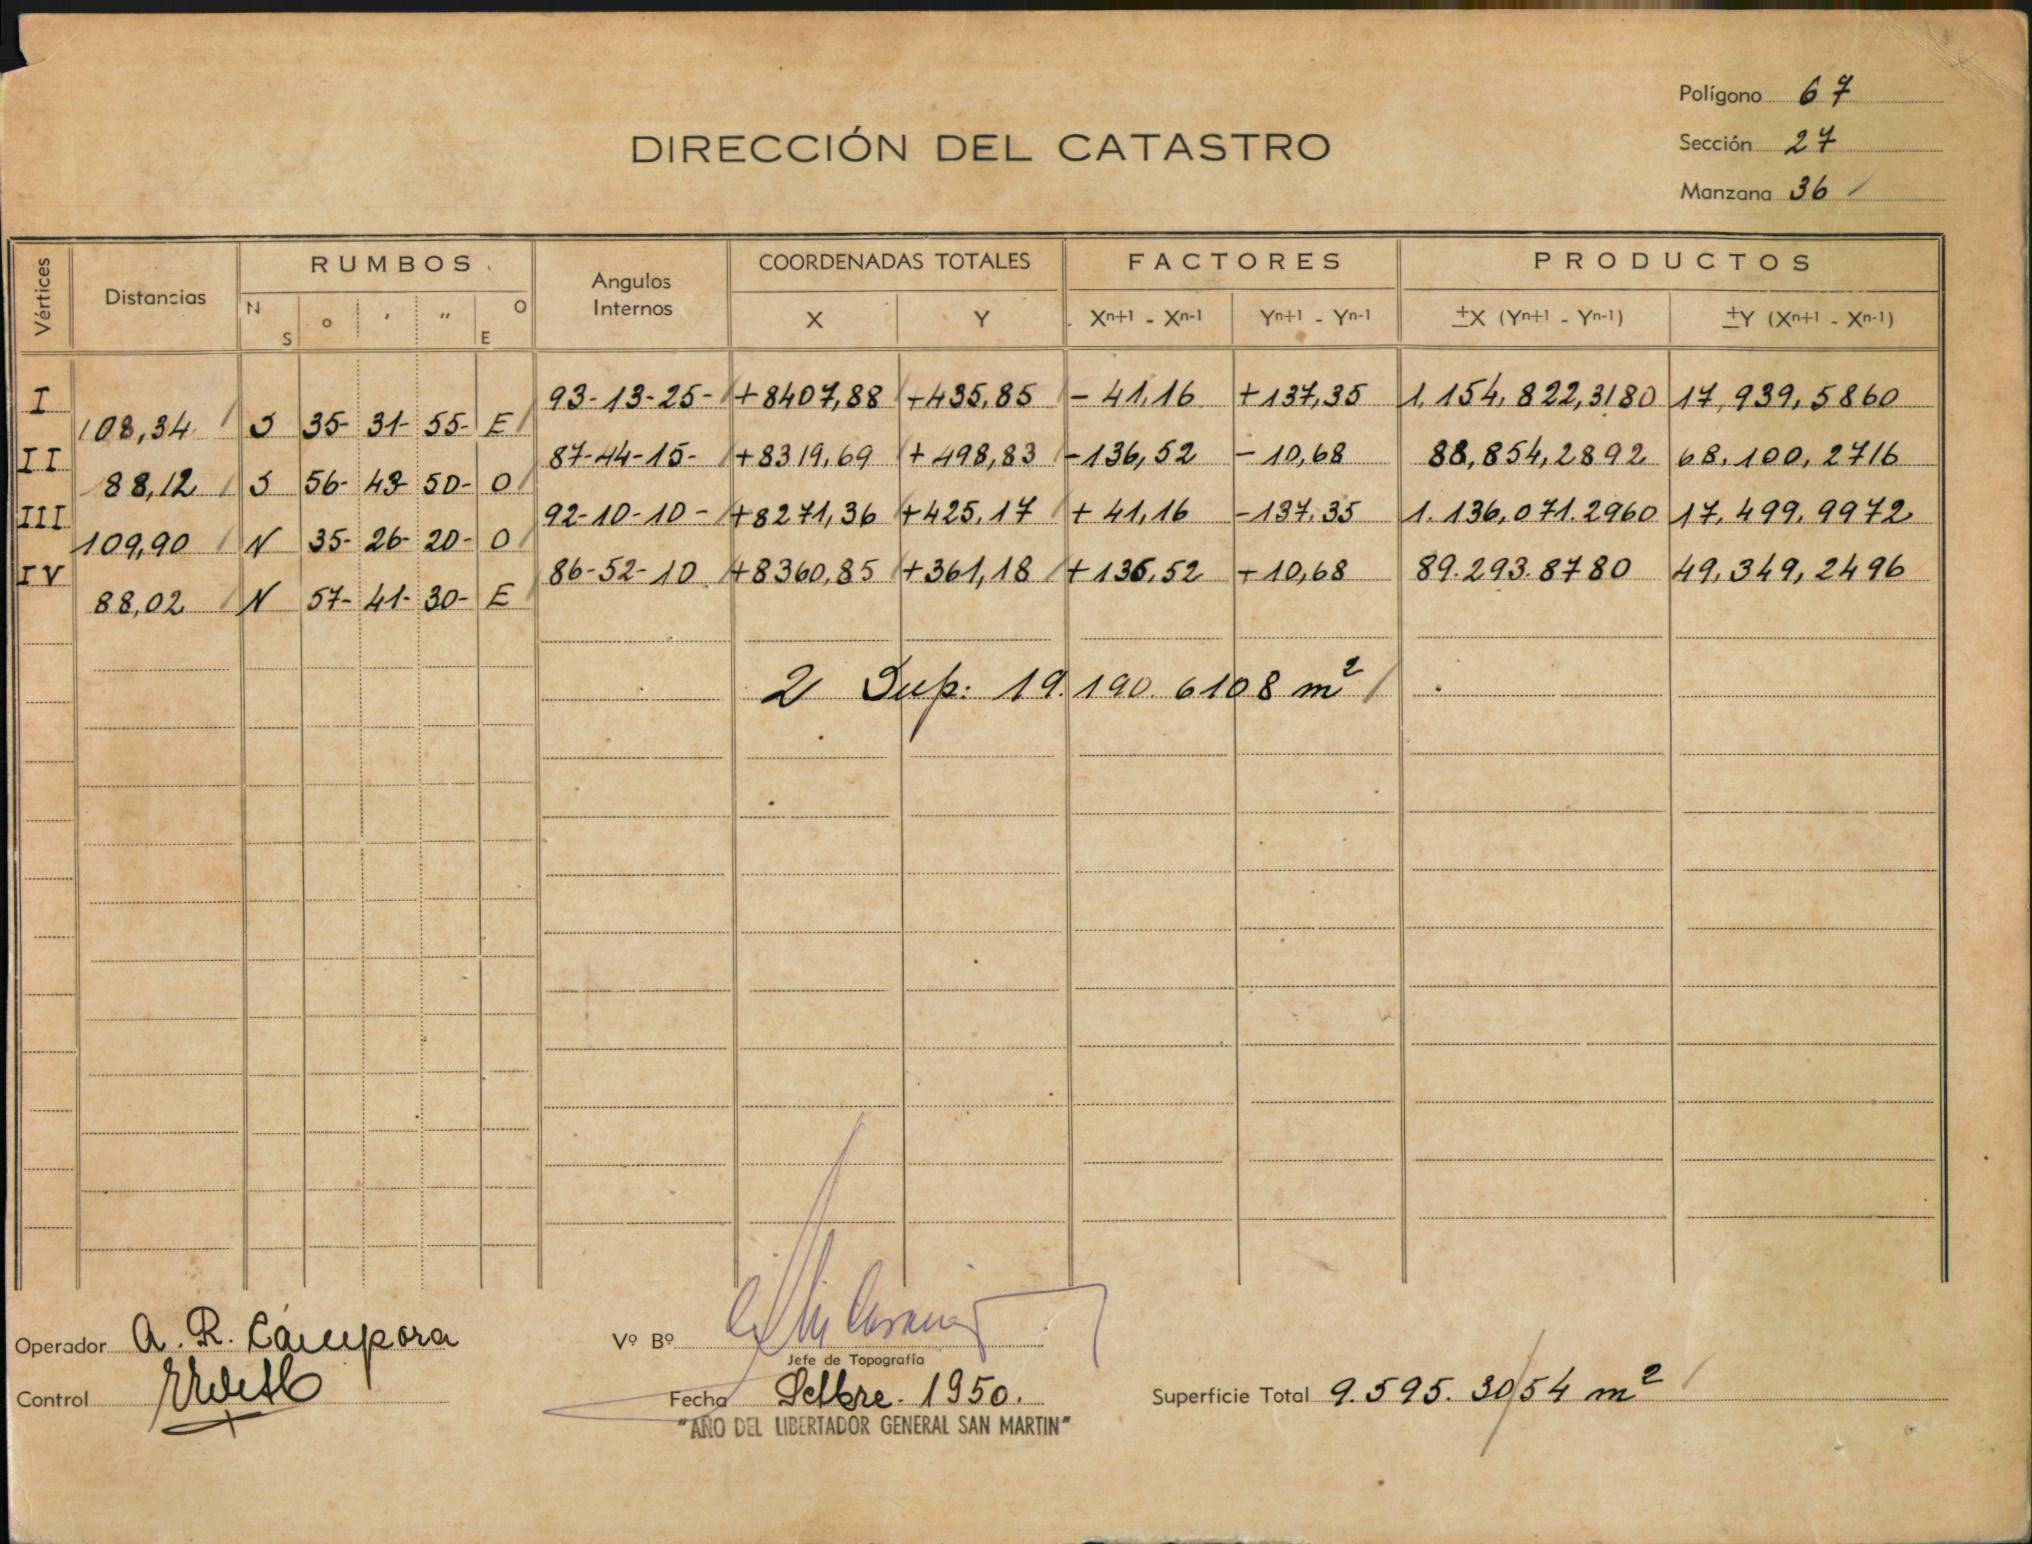 Polígono 67
DIRECCIÓN DEL CATASTRO
Sección 27
Manzana 36
Vértices Distancias RUMBOS. Angulos Internos COORDENADAS TOTALES FACTORES PRODUCTOS
N S o ' " O E X Y Xn+1 - Xn-1 Yn+1 - Yn-1 ±X (Yn+1 - Yn-1) ±Y (Xn+1 - Xn-1)
I 93-13-25- +8407,88 +435,85 - 41,16 +137,35 1.154,822,3180 17,939,5860
108,34 S 35- 31- 55- E
II 87-44-15- +8319,69 +498,83 -136,52 - 10,68 88,854,2892 68.100,2716
88,12 S 56- 43- 50- O
III 92-10-10- +8271,36 +425,17 + 41,16 -137,35 1.136,071.2960 17,499,9972
109,90 N 35- 26- 20- O
IV 86-52-10 +8360,85 +361,18 +136,52 +10,68 89.293.8780 49,349,2496
88,02 N 57- 41- 30- E
2 Sup: 19.190.6108 m²
Operador A. R. Cámpora Vº Bº
Jefe de Topografía
Control Fecha Setbre. 1950. Superficie Total 9.595.3054 m²
"AÑO DEL LIBERTADOR GENERAL SAN MARTIN"